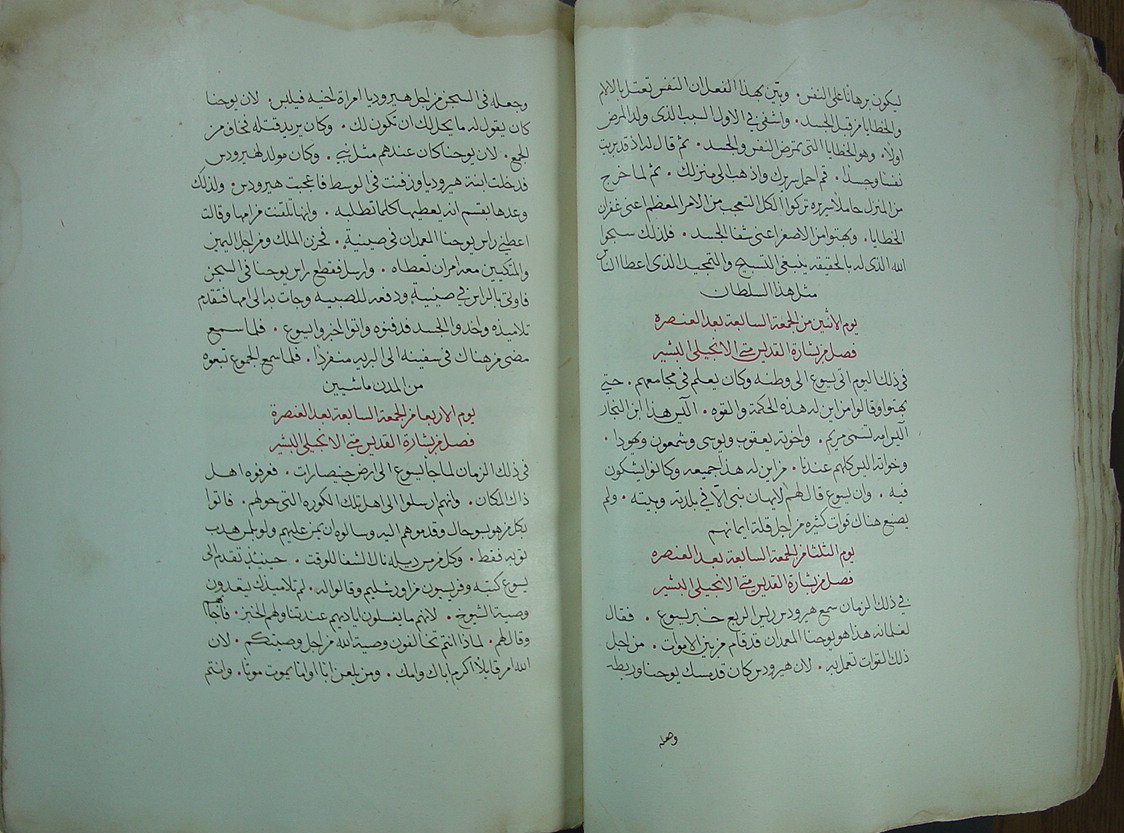 ليكون برهانا على النفس. وبين بهذا الفعل ان النفس تعتل بالالام
والخطايا من قبل الجسد. واشفى في الاول السبب الذى ولد المرض
اولا. وهو الخطايا التى تمرض النفس والجسد. ثم قال له اذ قد بريت
نفسا وجسدا. قم احمل سريرك واذهب الى منزلك. ثم لما خرج
من المنزل حاملا سريره تركوا الكل التعجب من الامر المعظم اعنى غفران
الخطايا. وبهتوا من الاصغر اعنى شفا الجسد. فلذلك سبحوا
الله الذى له بالحقيقه ينبغى التسبيح والتمجيد الذى اعطا الناس
مثل هذا السلطان
يوم الاثنين من الجمعة السابعة بعد العنصره
فصل من بشارة القديس متى الانجيلى البشير
فى ذلك اليوم اتى يسوع الى وطنه وكان يعلم فى مجامعهم. حتى
بهتوا وقالوا من اين له هذه الحكمة والقوه. اليس هذا ابن النجار
اليس امه تسمى مريم. واخوته يعقوب ويوسى وشمعون ويهودا.
وخواته اليس كلهم عندنا. من اين له هذا جميعه وكانوا يشكون
فيه. وان يسوع قال لهم لا يهان نبى الا فى بلدته وبيته. ولم
يصنع هناك قوات كثيره من اجل قلة ايمانهم
يوم الثلثا من الجمعة السابعة بعد العنصره
فصل من بشارة القديس متى الانجيلى البشير
فى ذلك الزمان سمع هيرودس ريس الربع خبر يسوع. فقال
لغلمانه هذا هو يوحنا المعمدان قد قام من بين الاموات. من اجل
ذلك القوات تعمل به. لان هيرودس كان قد مسك يوحنا وربطه
وجعله
وجعله فى السجن من اجل هيروديا امراة اخيه فيلبس. لان يوحنا
كان يقول له ما يحل لك ان تكون لك. وكان يريد قتله فخاف من
الجمع. لان يوحنا كان عندهم مثل نبى. وكان مولد لهيرودس
فدخلت ابنة هيروديا وزفنت فى الوسط فاعجبت هيرودس. ولذلك
وعدها بقسم انه يعطيها كلما تطلبه. وانها تلقنت من امها وقالت
اعطنى راس يوحنا المعمدان فى صينية. فحزن الملك ومن اجل اليمين
والمتكيين معه امر ان تعطاه. وارسل فقطع راس يوحنا فى السجن
فاوتى بالراس فى صينية ودفعه للصبيه وجات به الى امها فتقدم
تلاميذه واخدوا الجسد فدفنوه واتوا اخبروا يسوع. فلما سمع
مضى من هناك فى سفينه الى البريه منفردا. فلما سمع الجموع تبعوه
من المدن ماشيين
يوم الاربعا من الجمعة السابعة بعد العنصرة
فصل من بشارة القديس متى الانجيلى البشير
فى ذلك الزمان لما جا يسوع الى ارض جنصارات. فعرفوه اهل
ذاك المكان. وانهم ارسلوا الى اهل تلك الكوره التى حولهم. فاتوا
بكل من هو بسو حال وقدموهم اليه وسالوه ان يمن عليهم ولو بلمس هدب
ثوبه فقط. وكل من مس ديله نال الشفا للوقت. حينيذ تقدم الى
يسوع كتبه وفريسيون من اورشليم وقالوا له. لم تلاميذك يتعدون
وصية الشيوخ. لانهم ما يغسلون اياديهم عند تناولهم الخبز. فاجابهم
وقال لهم. لماذا انتم تخالفون وصية الله من اجل وصيتكم. لان
الله امر قايلا اكرم اباك وامك. ومن يلعن ابا او اما يموت موتا. وانتم